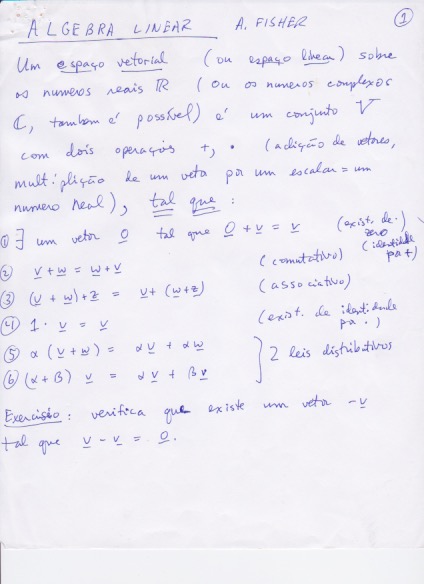 ALGEBRA LINEAR A. FISHER 1
Um espaço vetorial (ou espaço linear) sobre
os numeros reais ℝ (ou os numeros complexos
ℂ, também é possível) é um conjunto V
com dois operações +, · (adição de vetores,
multiplição de um vetor por um escalar = um
numero real), tal que:
① ∃ um vetor 0 tal que 0 + v = v (exist. de zero
(identidade pa +)
② v + w = w + v (comutativo)
③ (v + w) + z = v + (w + z) (associativo)
④ 1 · v = v (exist. de identidade
pa ·)
⑤ α (v + w) = αv + αw } 2 leis distributivos
⑥ (α + β) v = αv + βv
Exercisio: verifica que existe um vetor -v
tal que v - v = 0.